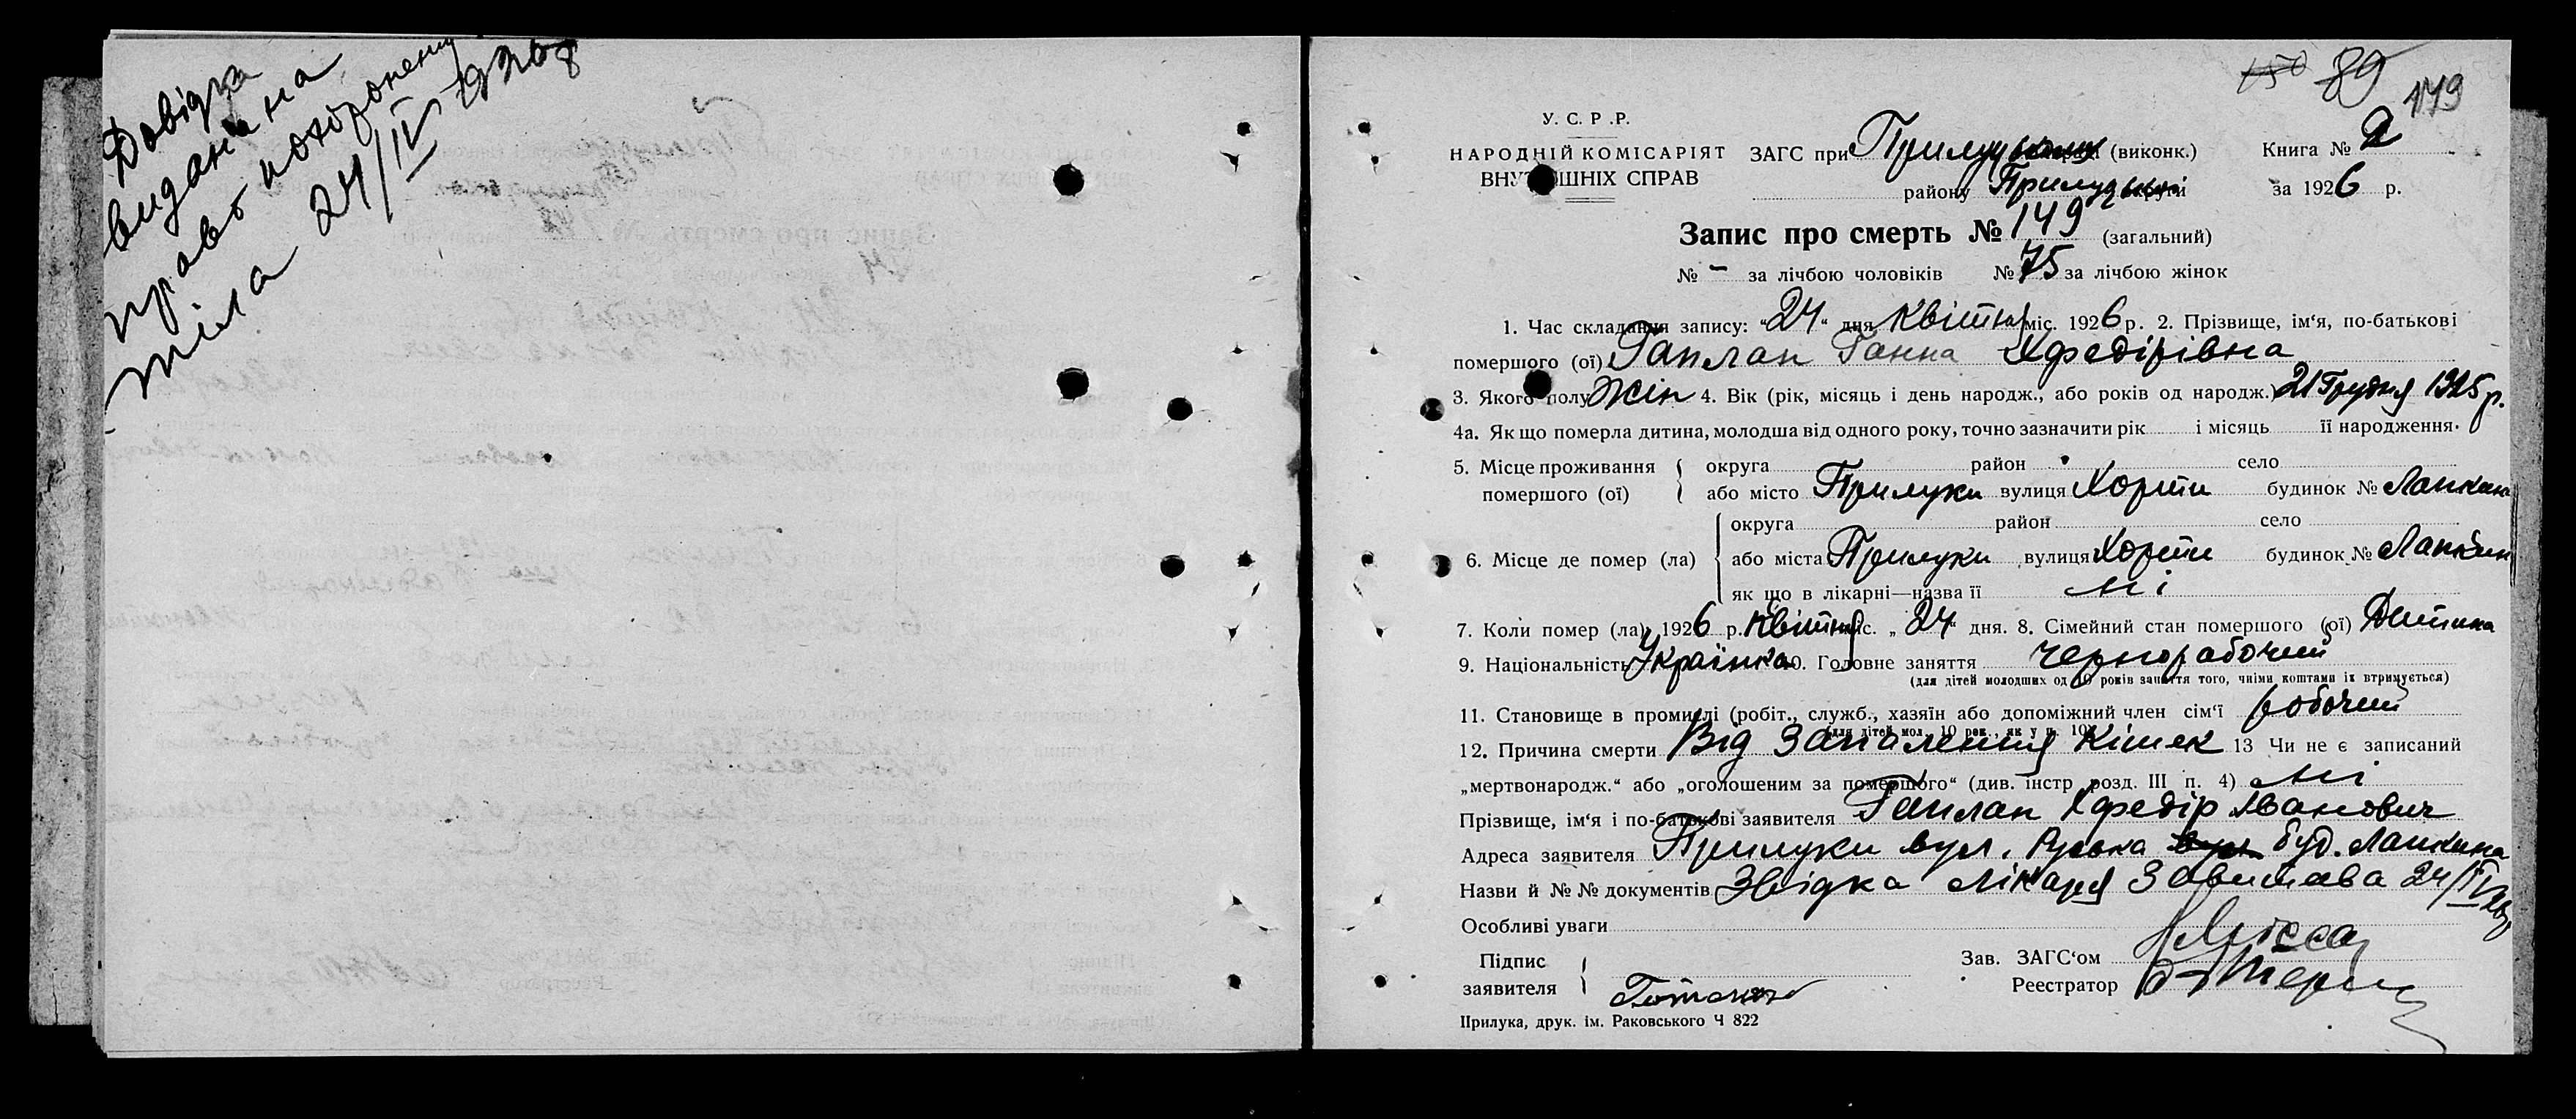 Довідка
видана на
право похоронення
тіла 24/IV 1926 р
150 89 149
У. С. Р. Р.
НАРОДНІЙ КОМІСАРІЯТ ЗАГС при Прилуцькім (виконк.) Книга № 2
ВНУТРІШНІХ СПРАВ району Прилуцької округи за 1926 р.
Запис про смерть № 149 (загальний)
№ - за лічбою чоловіків № 75 за лічбою жінок
1. Час складання запису: "24" дня Квітня міс. 1926 р. 2. Прізвище, ім'я, по-батькові
помершого (ої) Гаплан Ганна Хфедірівна
3. Якого полу Жін 4. Вік (рік, місяць і день народж., або років од народж.) 21 Грудня 1925 р.
4а. Як що померла дитина, молодша від одного року, точно зазначити рік і місяць її народження.
5. Місце проживання округа район село
помершого (ої) або місто Прилуки вулиця будинок № Лапкина
округа район село
6. Місце де помер (ла) або міста Прилуки вулиця будинок № Лапкин
як що в лікарні—назва її ні
7. Коли помер (ла) 1926 р. Квітня міс. „24" дня. 8. Сімейний стан помершого (ої) Дитина
9. Національність Українка 10. Головне заняття чернорабочий
(для дітей молодших од 10 років заняття того, чиїми коштами їх втримується)
11. Становище в промислі (робіт., служб., хазяїн або допоміжний член сім'ї робочий
(для дітей мол. 10 рок., як у п. 10)
12. Причина смерти Від Запалення Кишек 13 Чи не є записаний
„мертвонародж." або „оголошеним за помершого" (див. інстр розд. III п. 4) ні
Прізвище, ім'я і по-батькові заявителя Гаплан Хфедір Іванович
Адреса заявителя Прилуки вул. буд. Лапкина
Назви й №№ документів Звідка лікаря 24/IV
Особливі уваги
Підпис Зав. ЗАГС'ом
заявителя Реестратор
Прилука, друк. ім. Раковського Ч 822